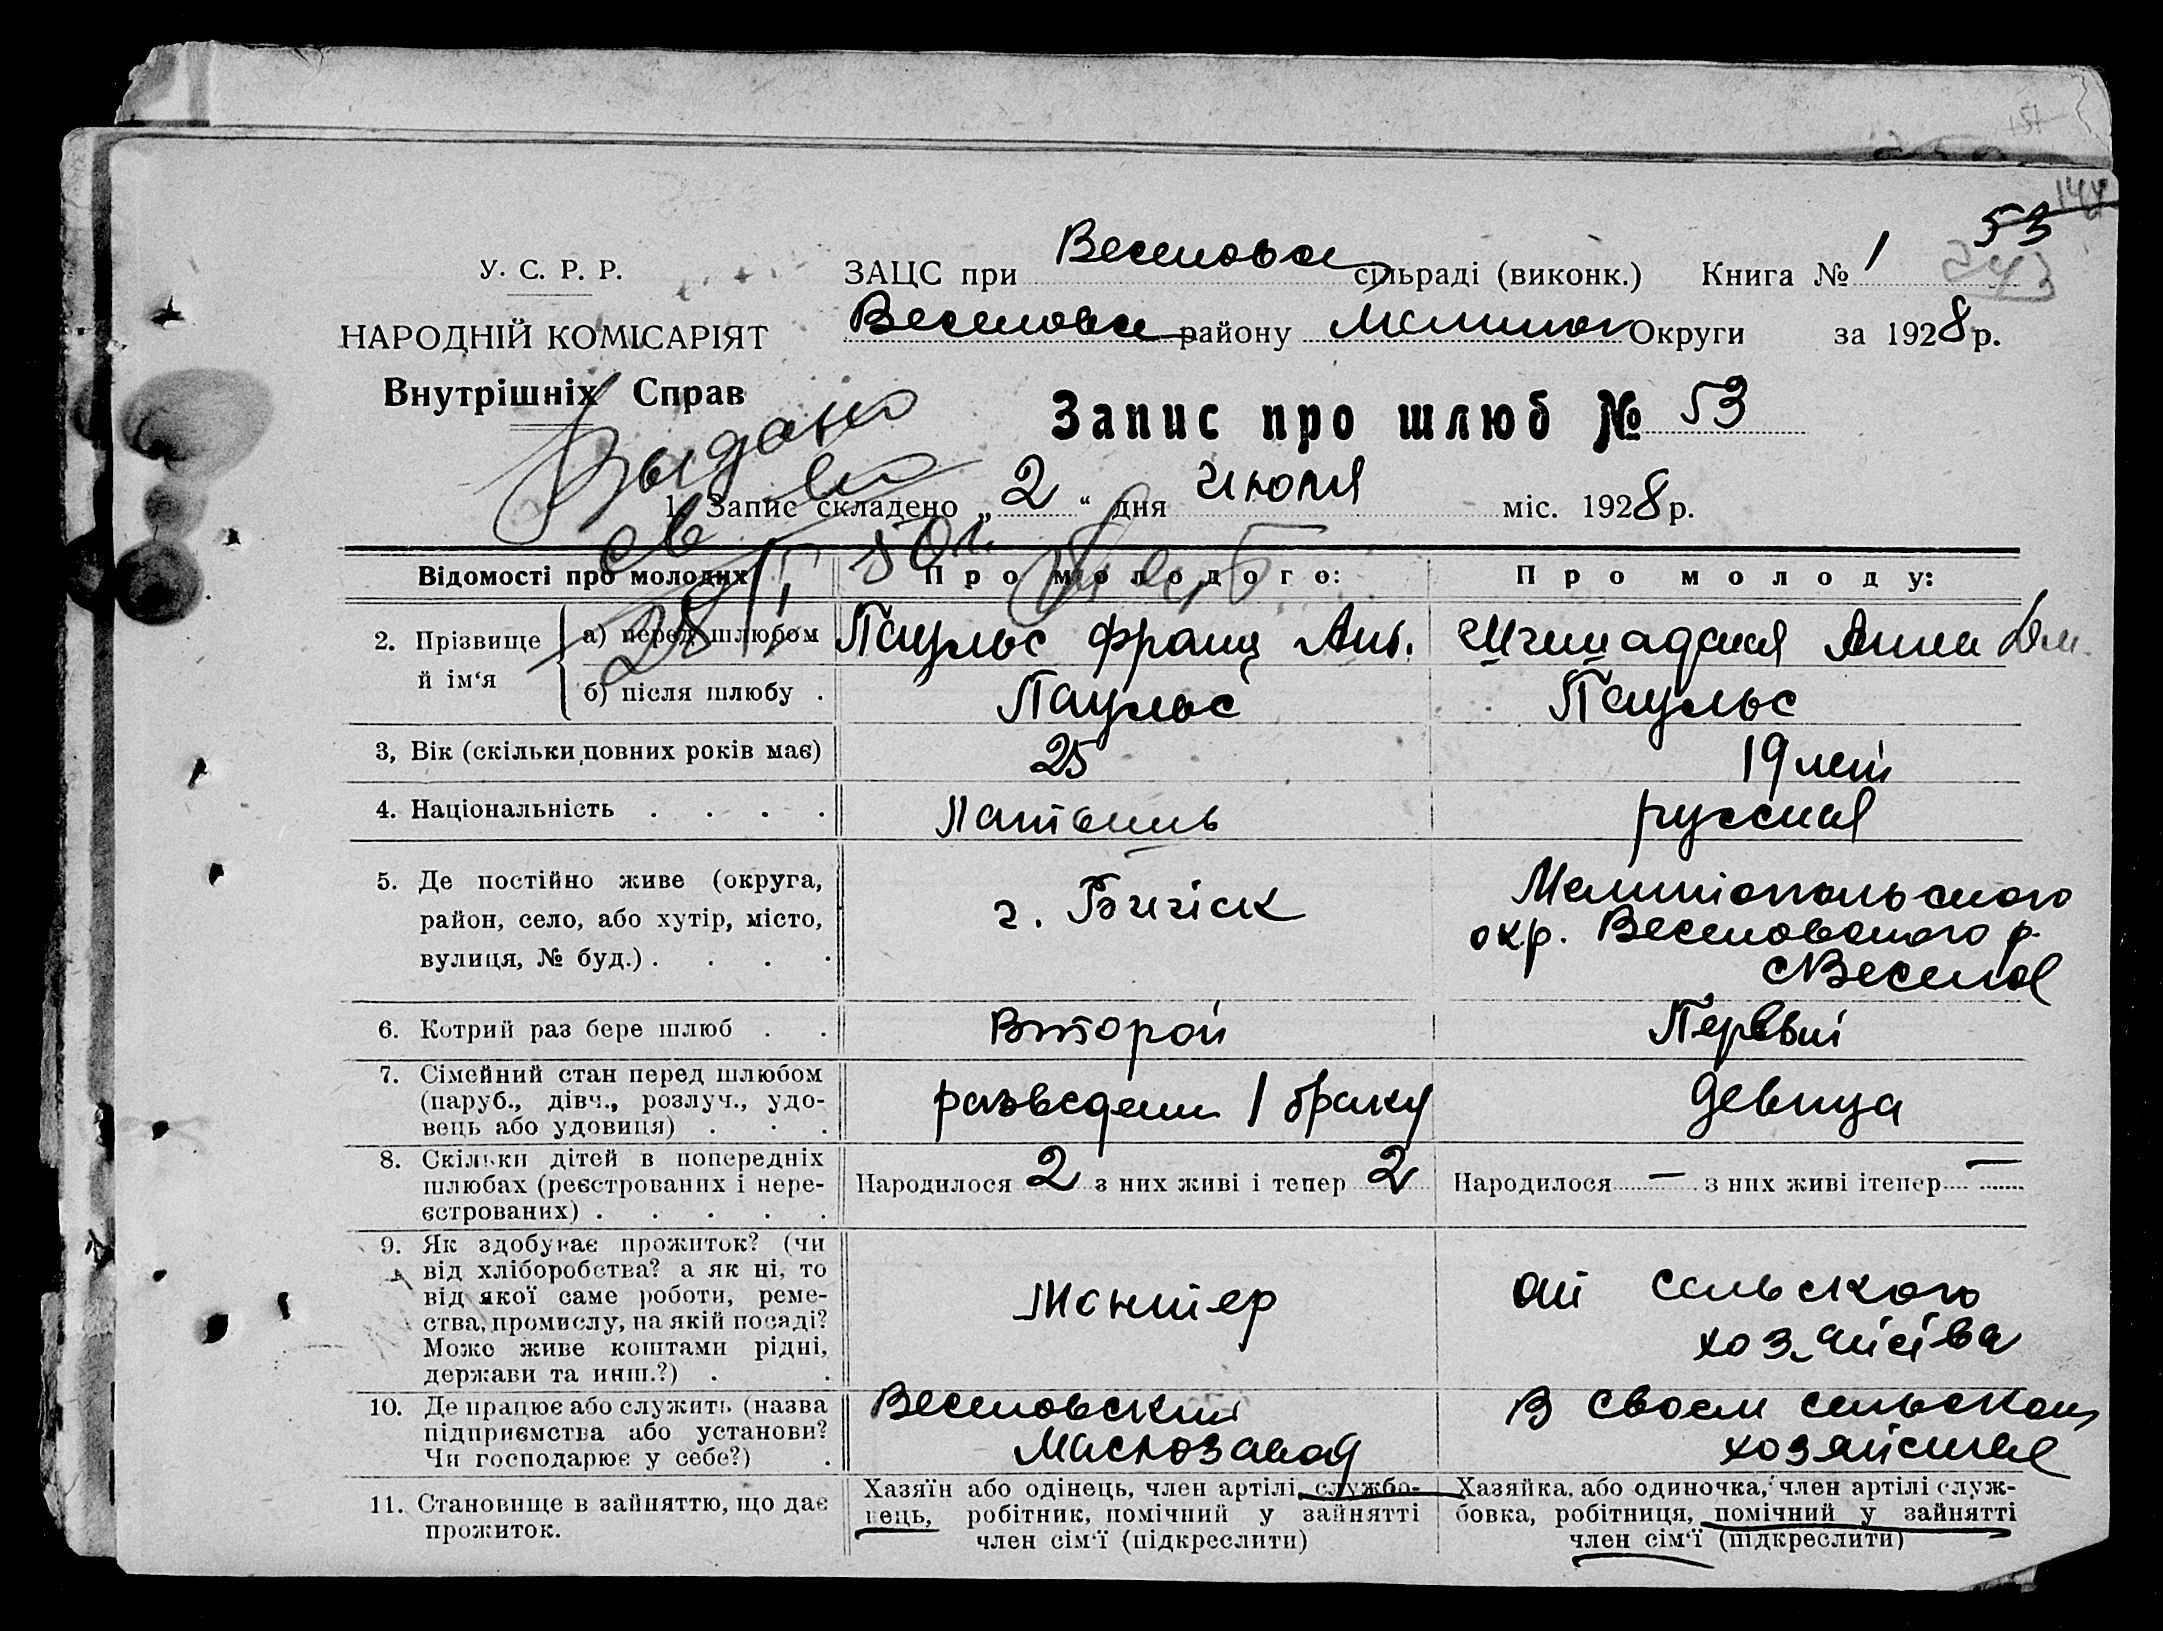 53
У. С. Р. Р.
ЗАЦС при Веселовск сільраді (виконк.) Книга № 1
243
НАРОДНІЙ КОМІСАРІЯТ
Веселовск району Мелитоп Округи за 1928 р.
Внутрішніх Справ
Выдано
Запис про шлюб № 53
1. Запис складено „ 2 “ дня Июля міс. 1928 р.
св
50 г.
28/I
Відомості про молодих Про молодого: Про молоду:
2. Прізвище й ім‘я а) перед шлюбом Паульс Франц Ант. Анна
б) після шлюбу . Паульс Паульс
3, Вік (скільки повних років має) 25 19 лет
4. Національність . . . . Латышь русская
5. Де постійно живе (округа, район, село, або хутір, місто, вулиця, № буд.) . . . . г. Мелитопольского
окр. Веселовского р.
с Веселое
6. Котрий раз бере шлюб . . Второй Первый
7. Сімейний стан перед шлюбом (паруб., дівч., розлуч., удо-
вець або удовиця) . . . разведен 1 браку девица
8. Скільки дітей в попередніх шлюбах (реєстрованих і нере-
єстрованих) . . . . . Народилося 2 з них живі і тепер 2 Народилося — з них живі ітепер —
9. Як здобуває прожиток? (чи
від хліборобства? а як ні, то
від якої саме роботи, реме-
ства, промислу, на якій посаді?
Може живе коштами рідні,
держави та инш.?) . .
Монтер от сельского
хозяйства
10. Де працює або служить (назва
підприємства або установи?
Чи господарює у себе?) .
Веселовский
Маслозавод
В своем сельском
хозяйстве
11. Становище в зайняттю, що дає
прожиток.
Хазяїн або одінець, член артілі, службо-
вець, робітник, помічний у зайнятті
член сім‘ї (підкреслити)
Хазяйка, або одиночка, член артілі служ-
бовка, робітниця, помічний у зайнятті
член сім‘ї (підкреслити)